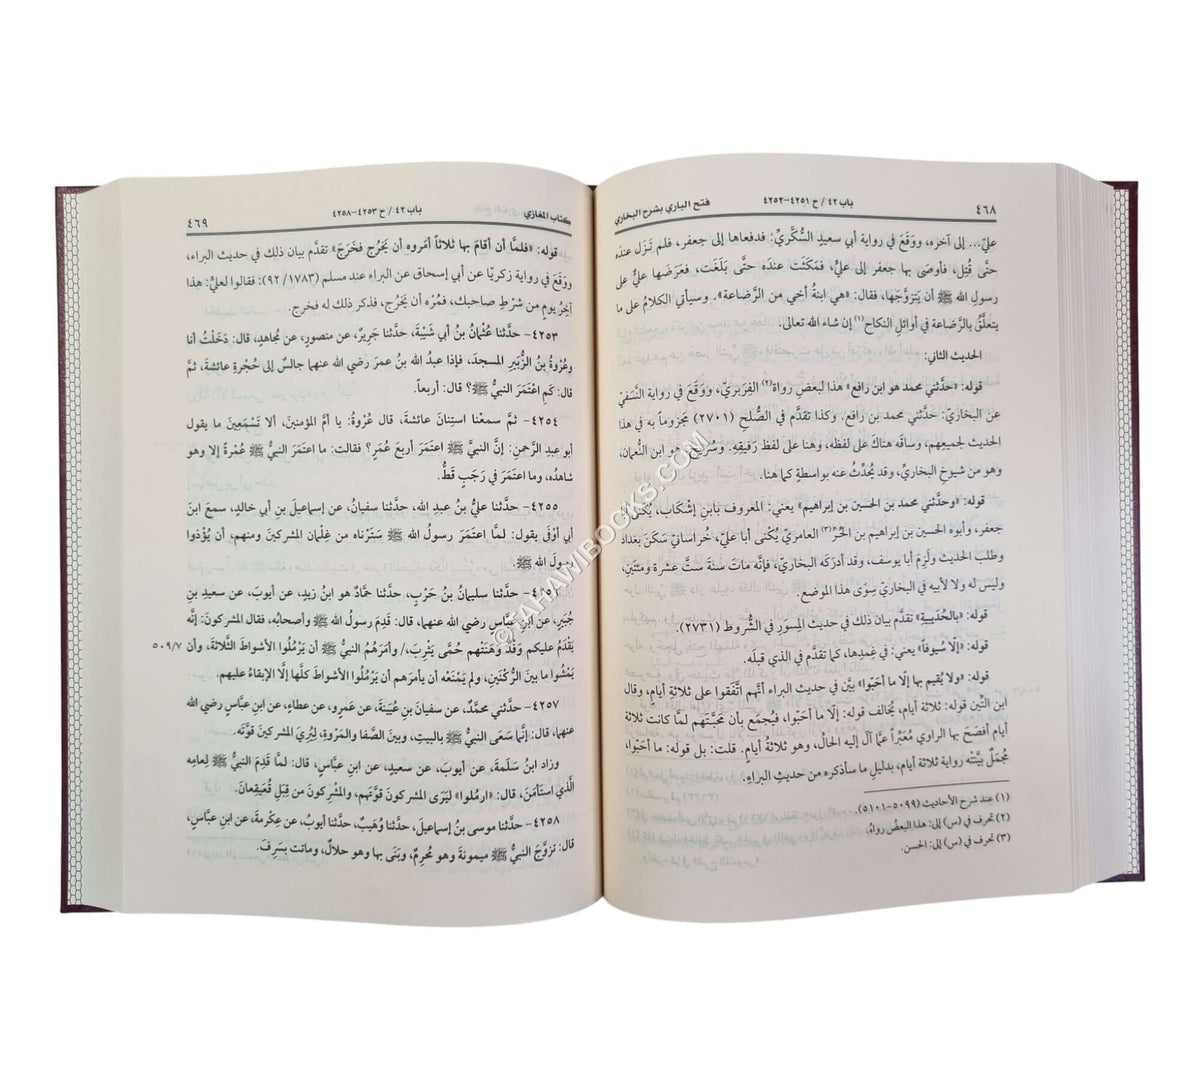 ٤٦٨
باب ٤٢/ ح ٤٢٥١-٤٢٥٢
فتح الباري بشرح البخاري
عليّ... إلى آخره، ووَقَعَ في رواية أبي سعيدٍ السُّكَّريّ: فدفعاها إلى جعفر، فلم تَزَل عندَه
حتَّى قُتِل، فأوصَى بها جعفر إلى عليٍّ، فمَكَثَت عندَه حتَّى بَلَغَت، فعَرَضَها عليٌّ على
رسولِ الله ﷺ أن يَتزوَّجَها، فقال: «هي ابنةُ أخي من الرَّضاعة». وسيأتي الكلامُ على ما
يتعلَّقُ بالرَّضاعة في أوائلِ النكاح(١) إن شاء الله تعالى.
الحديث الثاني:
قوله: «حدَّثني محمد هو ابن رافع» هذا لبعضِ رواة(٢) الفِرَبريّ، ووَقَعَ في رواية النَّسَفيّ
عن البخاريّ: حدَّثني محمد بن رافع. وكذا تقدَّم في الصُّلح (٢٧٠١) مجزوماً به في هذا
الحديث لجميعهم، وساقَه هناك على لفظه، وهنا على لفظ رَفيقِه. وسُرَيج: هو ابن النُّعمان،
وهو من شيوخ البخاريِّ، وقد يُحدِّثُ عنه بواسطةٍ كما هنا.
قوله: «وحدَّثني محمد بن الحسين بن إبراهيم» يعني: المعروف بابنِ إشْكاب، يُكْنَى أبا
جعفر، وأبوه الحسين بن إبراهيم بن الحُرِّ(٣) العامريّ يُكْنَى أبا عليّ، خُراسانيّ سَكَنَ بغداد
وطلب الحديث ولَزِمَ أبا يوسف، وقد أدركَه البخاريّ، فإنَّه ماتَ سنةَ ستَّ عشرة ومئتَين،
وليس له ولا لأبيه في البخاريِّ سِوَى هذا الموضع.
قوله: «بالحُدَيبية» تقدَّم بيان ذلك في حديث المِسوَرِ في الشُّروط (٢٧٣١).
قوله: «إلّا سُيوفاً» يعني: في غِمدِها، كما تقدَّم في الذي قبلَه.
قوله: «ولا يُقيم بها إلّا ما أحَبّوا» بيَّن في حديث البراء أنَّهم اتَّفَقوا على ثلاثةِ أيامٍ، وقال
ابن التِّين قوله: ثلاثة أيام، يُخالف قوله: إلّا ما أحَبّوا، فيُجمَع بأن محبَّتهم لمَّا كانت ثلاثة
أيام أفصَحَ بها الراوي مُعبِّراً عمَّا آلَ إليه الحالُ، وهو ثلاثةُ أيامٍ. قلت: بل قوله: ما أحَبّوا،
مُجمَلٌ بيَّنَته رواية ثلاثة أيام، بدليلِ ما سأذكره من حديثِ البراءِ.
(١) عند شرح الأحاديث (٥٠٩٩-٥١٠١).
(٢) تحرف في (س) إلى: هذا البعض رواه.
(٣) تحرف في (س) إلى: الحسن.
كتاب المغازي
باب ٤٢/ ح ٤٢٥٣-٤٢٥٨
٤٦٩
قوله: «فلمَّا أن أقامَ بها ثلاثاً أمَروه أن يَخرُج فخَرَجَ» تقدَّم بيان ذلك في حديث البراء،
ووَقَعَ في رواية زكريّا عن أبي إسحاق عن البراء عند مسلم (١٧٨٣/ ٩٢): فقالوا لعليٍّ: هذا
آخِرُ يوم من شرْطِ صاحبك، فمُرْه أن يَخرُج، فذكر ذلك له فخرج.
٤٢٥٣- حدَّثنا عُثمانُ بنُ أبي شَيْبةَ، حدَّثنا جَريرٌ، عن منصورٍ، عن مُجاهدٍ، قال: دَخَلْتُ أنا
وعُرْوةُ بنُ الزُّبَيرِ المسجدَ، فإذا عبدُ الله بنُ عمرَ رضي الله عنهما جالسٌ إلى حُجْرةِ عائشةَ، ثمَّ
قال: كَمِ اعْتَمَرَ النبيُّ ﷺ؟ قال: أربعاً.
٤٢٥٤- ثمَّ سمعْنا استِنانَ عائشةَ، قال عُرْوةُ: يا أمَّ المؤمنين، ألا تَسْمَعِينَ ما يقول
أبو عبدِ الرَّحمنِ: إنَّ النبيَّ ﷺ اعتمَرَ أربعَ عُمَرٍ؟ فقالت: ما اعتمَرَ النبيُّ ﷺ عُمْرةً إلا وهو
شاهدُه، وما اعتمَرَ في رَجَبٍ قَطُّ.
٤٢٥٥- حدَّثنا عليُّ بنُ عبدِ الله، حدَّثنا سفيانُ، عن إسماعيلَ بنِ أبي خالدٍ، سمعَ ابنَ
أبي أوْفَى يقول: لمَّا اعتَمَرَ رسولُ الله ﷺ سَتَرْناه من غِلْمان المشركين ومنهم، أن يُؤْذُوا
رسولَ الله ﷺ.
٤٢٥٦- حدَّثنا سليمانُ بنُ حَرْبٍ، حدَّثنا حمَّادٌ هو ابنُ زيدٍ، عن أيوبَ، عن سعيدِ بنِ
جُبَيرٍ، عن ابنِ عبَّاسٍ رضي الله عنهما، قال: قَدِمَ رسولُ الله ﷺ وأصحابُه، فقال المشركون: إنَّه
يَقْدَمُ عليكم وَفْدٌ وهَنَتْهم حُمَّى يَثْرِبَ،/ وأمَرَهُمُ النبيُّ ﷺ أن يَرْمُلُوا الأشواطَ الثَّلاثةَ، وأن
٥٠٩/٧
يَمْشُوا ما بينَ الرُّكْنَينِ، ولم يَمْنَعْه أن يأمرَهم أن يَرْمُلُوا الأشواطَ كلَّها إلَّا الإبقاءُ عليهم.
٤٢٥٧- حدَّثني محمَّدٌ، عن سفيانَ بنِ عُيَينةَ، عن عمرٍو، عن عطاءٍ، عن ابنِ عبَّاسٍ رضي الله
عنهما، قال: إنَّما سَعَى النبيُّ ﷺ بالبيتِ، وبينَ الصَّفا والمَرْوةِ، لِيُرِيَ المشركين قوَّتَه.
وزاد ابنُ سَلَمةَ، عن أيوبَ، عن سعيدٍ، عن ابنِ عبَّاسٍ، قال: لمَّا قَدِمَ النبيُّ ﷺ لِعامِه
الَّذي استَأمَنَ، قال: «ارمُلوا» ليَرَى المشركونَ قوَّتَهم، والمشركون من قِبَلِ قُعَيقِعانَ.
٤٢٥٨- حدَّثنا موسى بنُ إسماعيلَ، حدَّثنا وُهَيبٌ، حدَّثنا أيوبُ، عن عِكْرمةَ، عن ابنِ عبَّاسٍ،
قال: تزوَّجَ النبيُّ ﷺ ميمونةَ وهو مُحرِمٌ، وبَنَى بها وهو حلالٌ، وماتت بسَرِفَ.
©TAHAWIBOOKS.COM